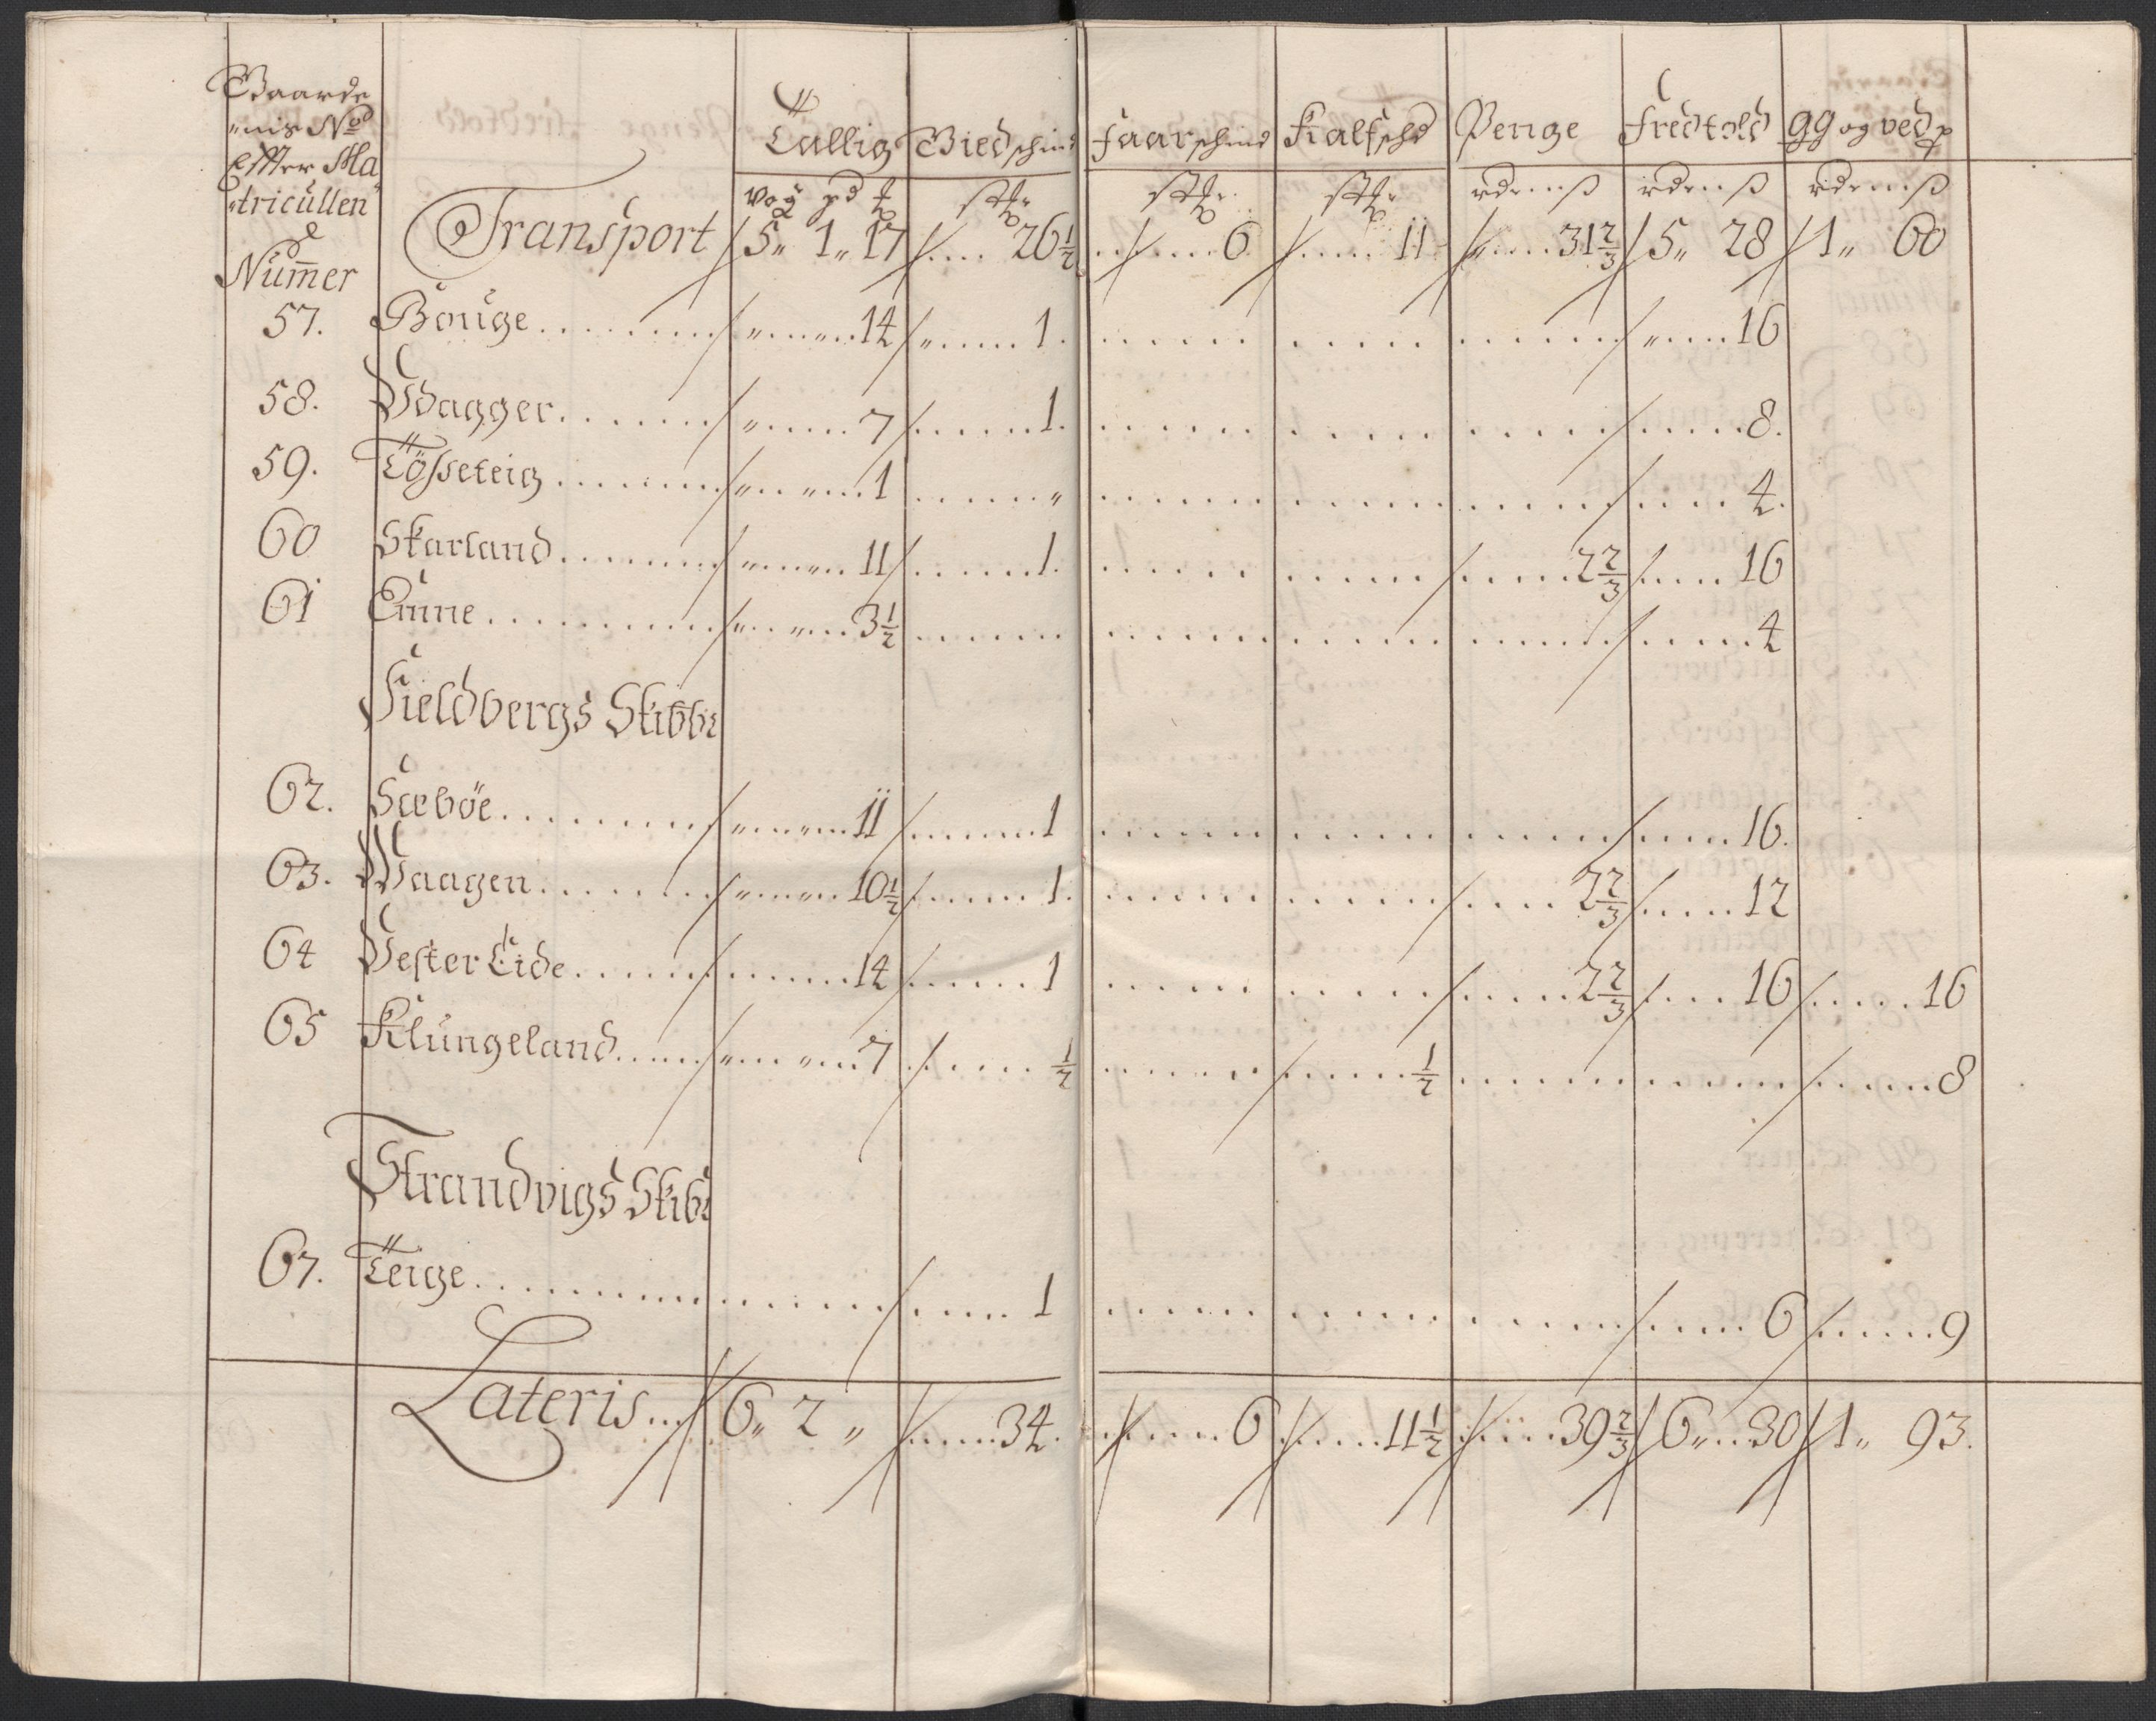 Gaarde
"nis No
Effter Ma
"tricullen
Nummer
Tallig Biedschind Faarschind Kalfschd Penge Fredtold gg og ved p
Vog pd
rdr ß rdr ß rdr ß
Transport 5" 1" 17 26 1/2 6 11 31 2/3 5" 28 1" 60
57. Bouge 14 1 16
58. Vdagger 7 1. 8.
59. Tösseteig 1 " 4.
60 Skarland 11 1. 2 2/3 16
61 Enune 3 1/2 4
Fieldbergs Skibbr
62. Sæböe 11 1 16.
63. Waagen 10 1/2 1. 2 2/3 12
64 Vester Eide 14 1 2 2/3 16 16
65 Klungeland 7 1/2 1/2 8
Strandvigs Skibr
67. Teige 1 6 9
Lateris 6" 2 " 34. 6 11 1/2 39 2/3 6" 30 1" 93.